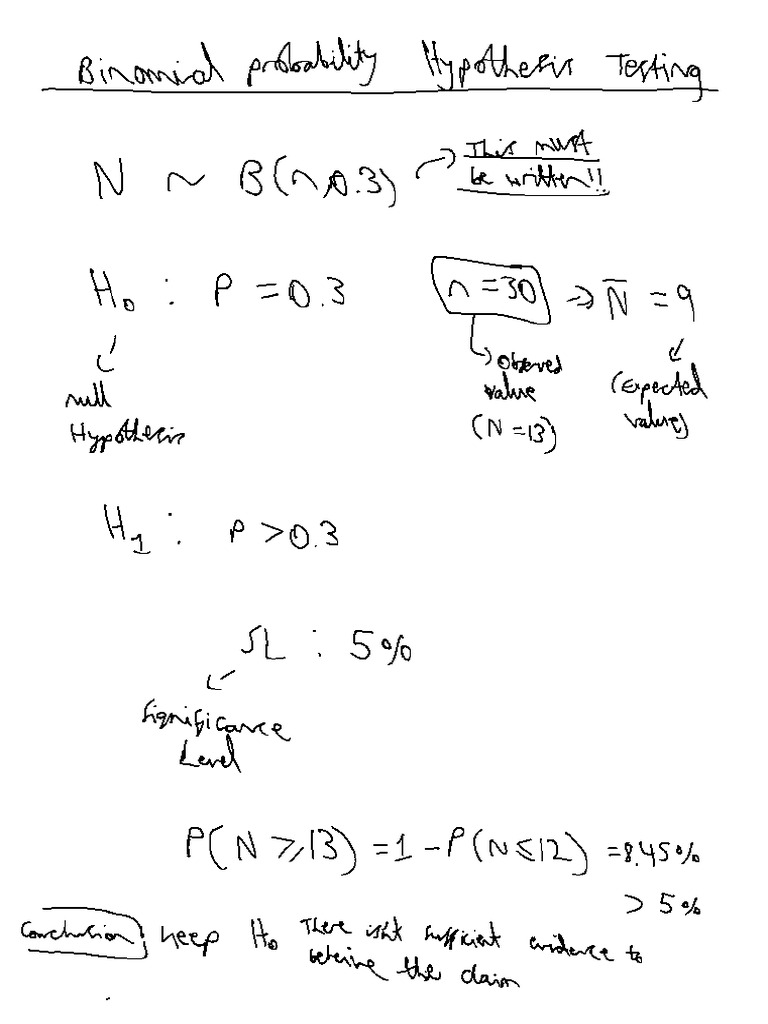 Binomial probability Hypothesis Testing
N ~ B(n,0.3) → This must
be written!!
H₀ : P = 0.3
n = 30 ⇒ N̄ = 9
null
Hypothesis
Observed
value
(N = 13)
(Expected
value)
H₁ : P > 0.3
SL : 5%
Significance
Level
P(N ⩾ 13) = 1 - P(N ⩽ 12) = 8.45%
> 5%
Conclusion keep H₀ There isn't sufficient evidence to
beleive the claim